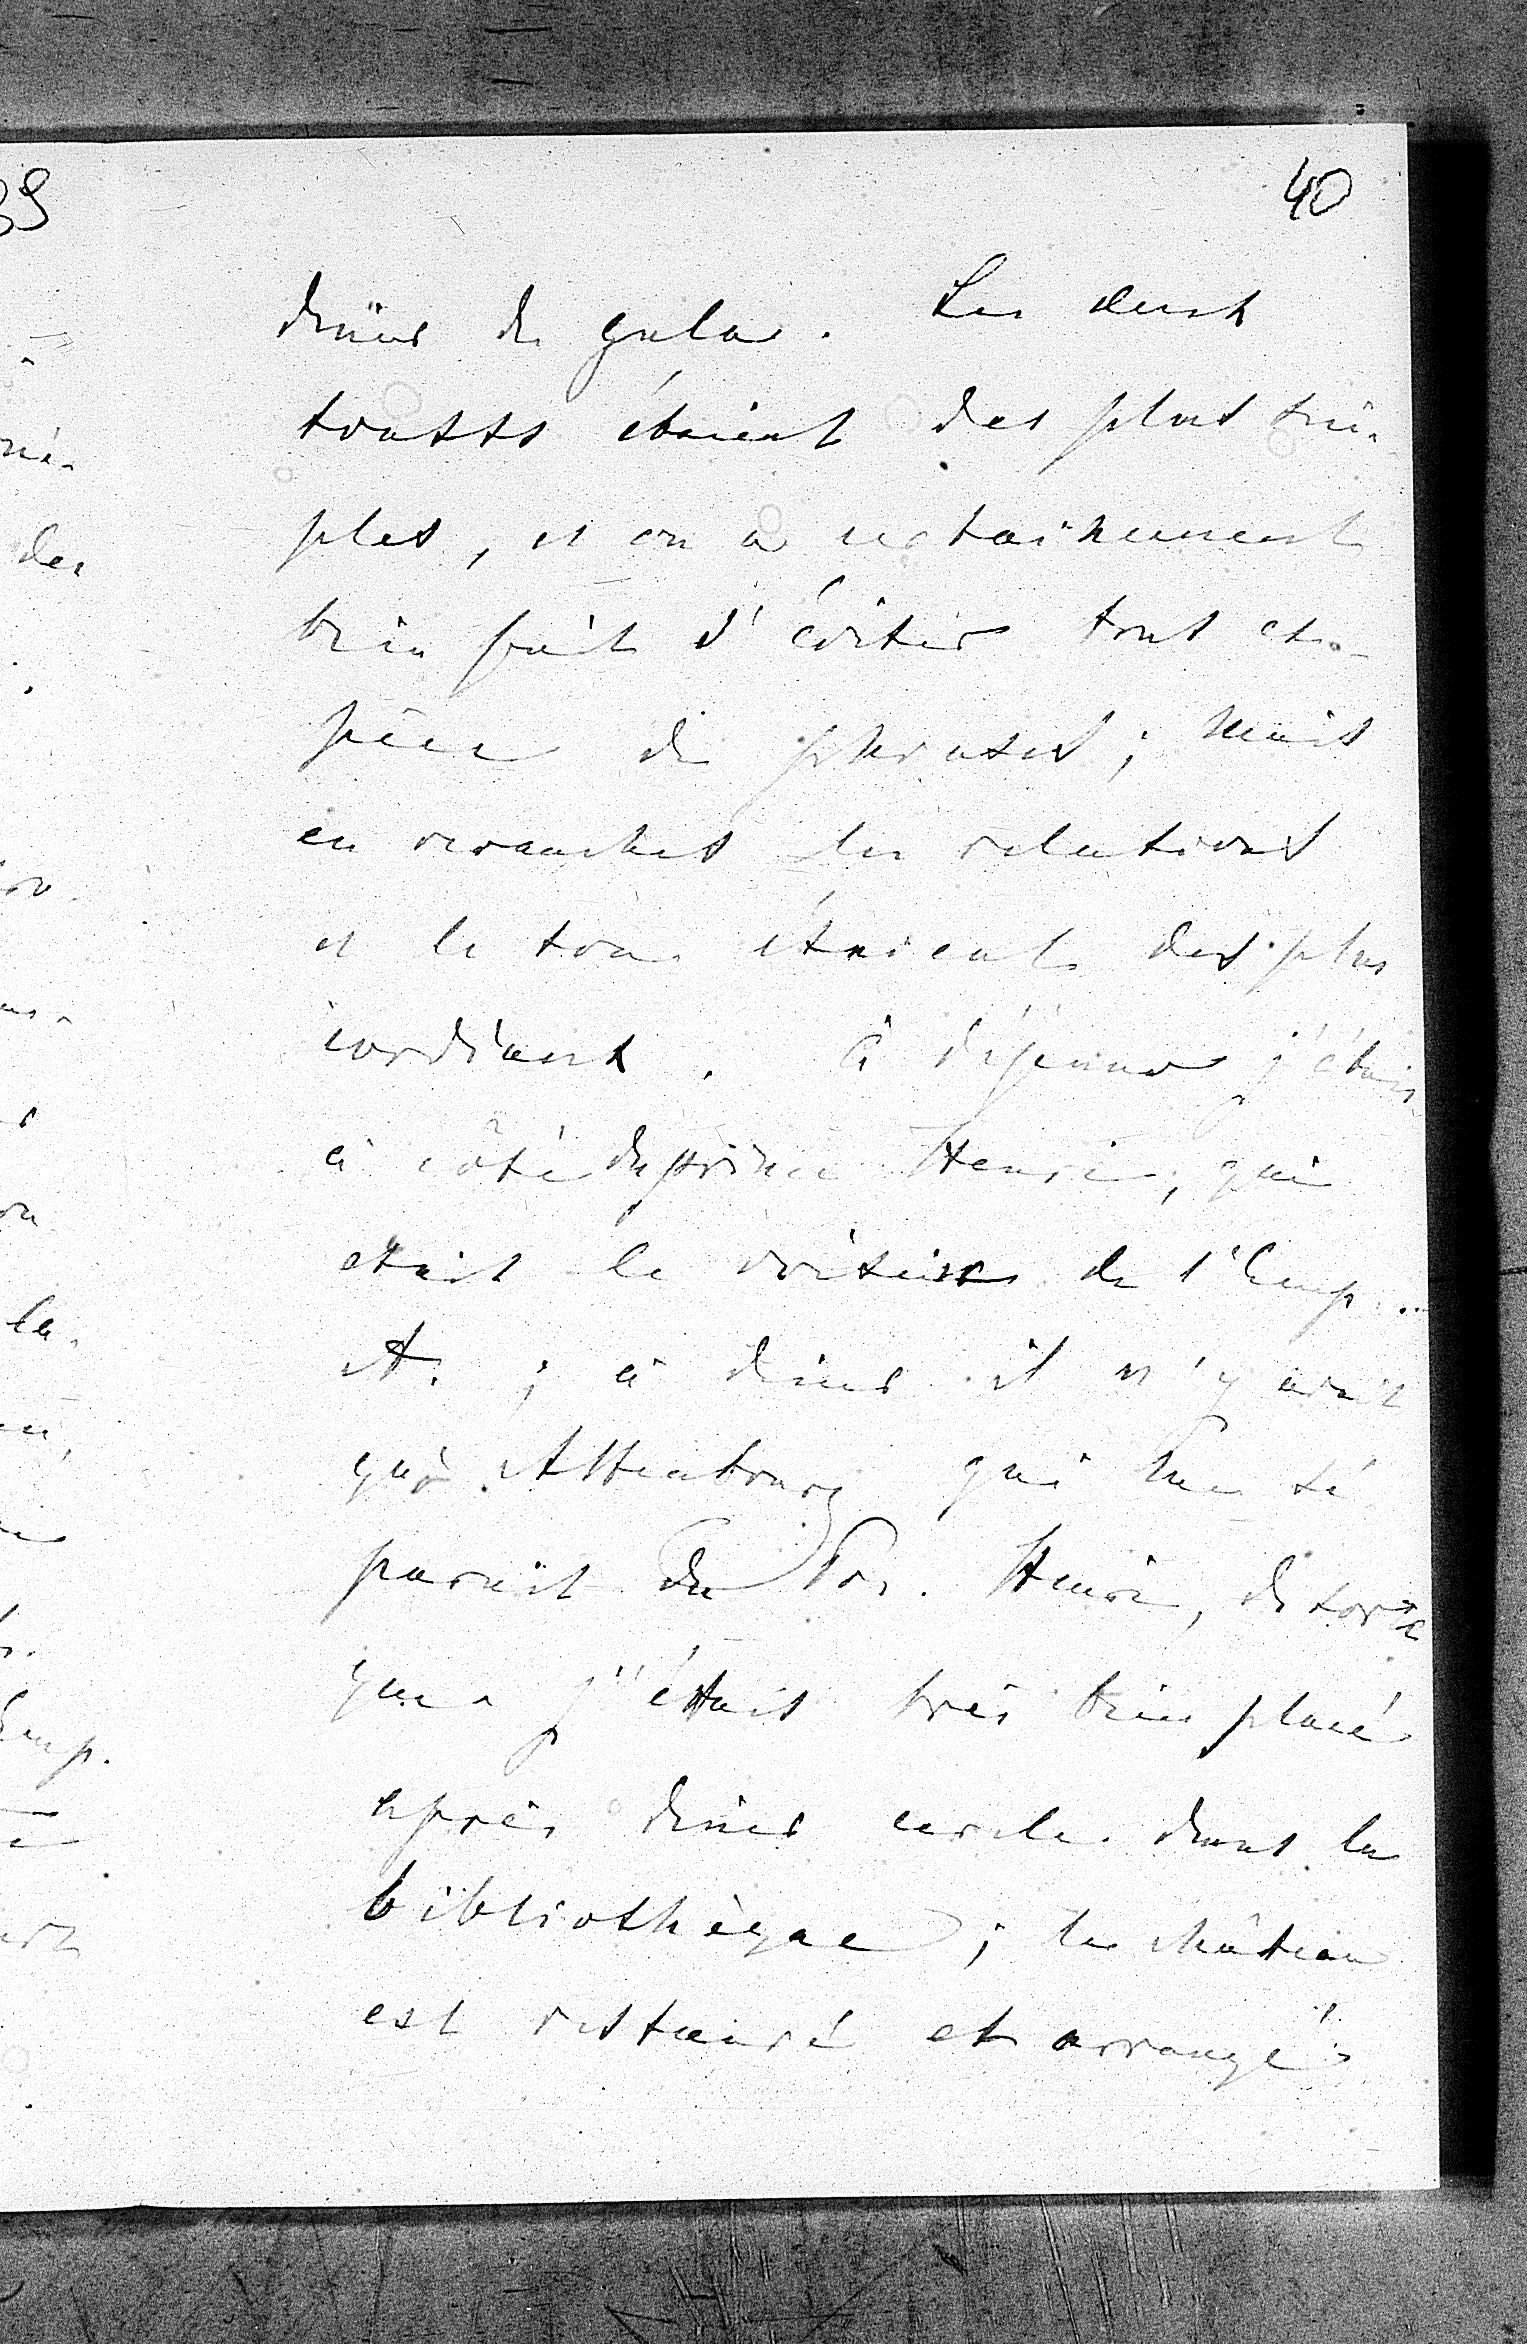 40
diner de gala. Les deux
toasts étaient des plus sim-
ples, et on a certainement
bien fait d'éviter tout es-
pèce de phrases; mais
en revanches les relations
et le ton étaient des plus
cordiaux. à déjeuner j'étais
à côté du prince Henri, qui
etait le voisin de l'Emp.
A. ; à diner il n'y avait
que Attenbourg qui me sé
parait du Pr. Henri, de sorte
que j'étais très bien placé
après diner cercle dans la
bibliothèque ; le château
est restauré et arrangé
39
des
la
Emp.